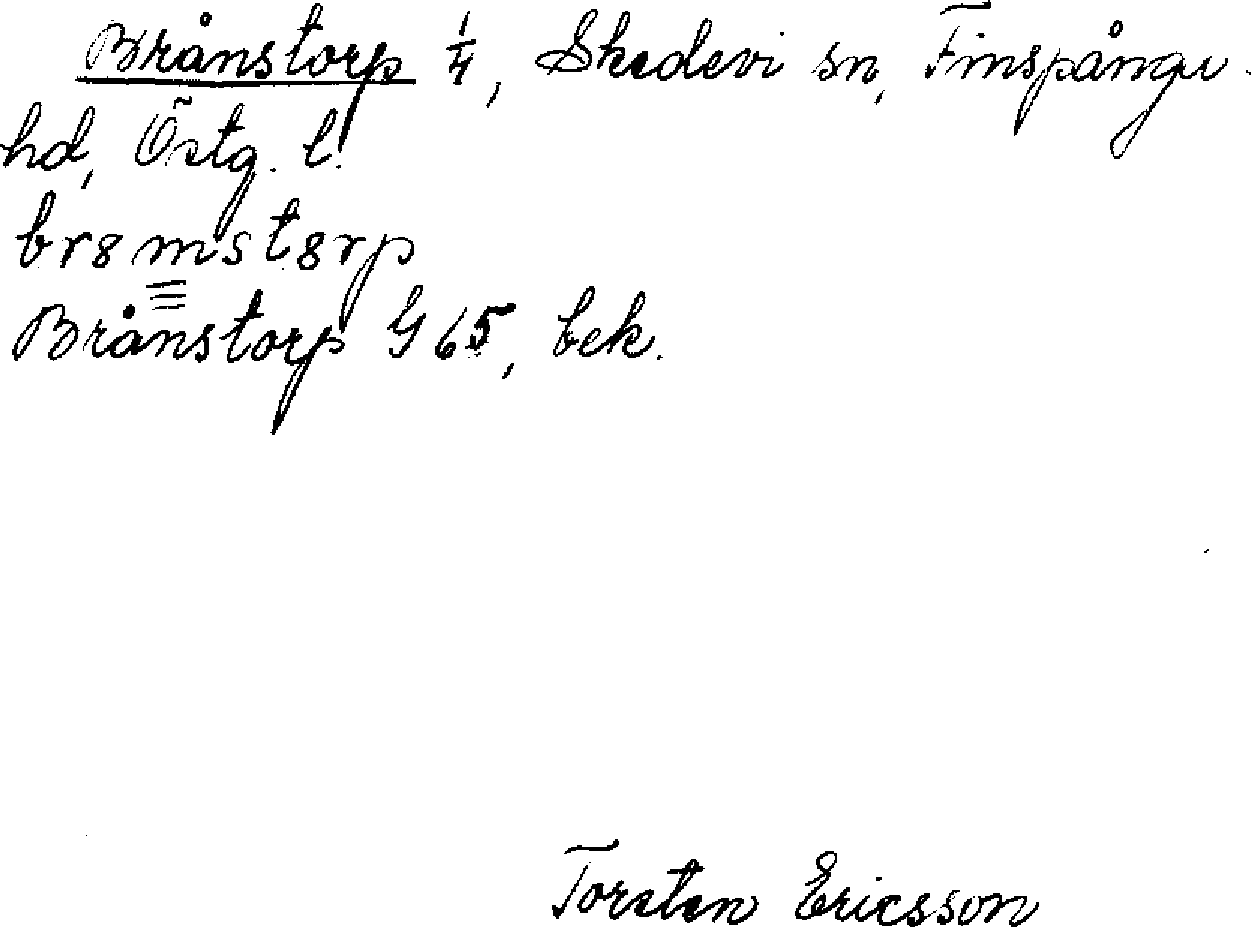 Brånstorp 1/4, Skedevi sn, Finspånga
hd, Östg. l.
br8mst8rp
Brånstorp G 65, bek.
Torsten Ericsson